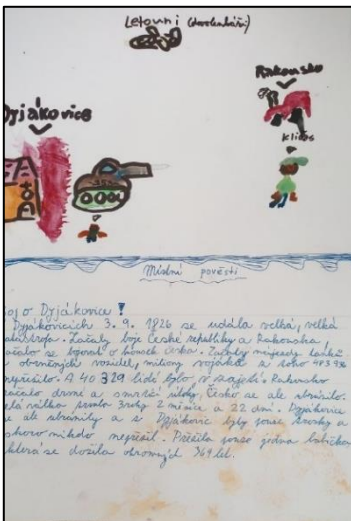 Letouni (dovolenkáři)
Rakousko
Dyjákovice
Kličos
Místní pověsti
boj o Dyjákovice!
Dyjákovicích 3. 9. 1826 se udála velká, velká
katastrofa. Začaly boje České republiky a Rakouska,
začalo se bojovat o hranice Česka. Začaly nájezdy tanků
a obrněných vozidel, miliony vojáků z toho 473 936
nepřežilo. A 40 329 lidí bylo v zajetí. Rakousko
začalo drsné a smrtící útoky, Česko se ale ubránilo.
celá válka trvala 3 roky 2 měsíce a 22 dní. Dyjákovice
se ale ubránily a z Dyjákovic byly pouze trosky a
skoro nikdo nepřežil. Přežila pouze jedna babička,
která se dožila 769 let.